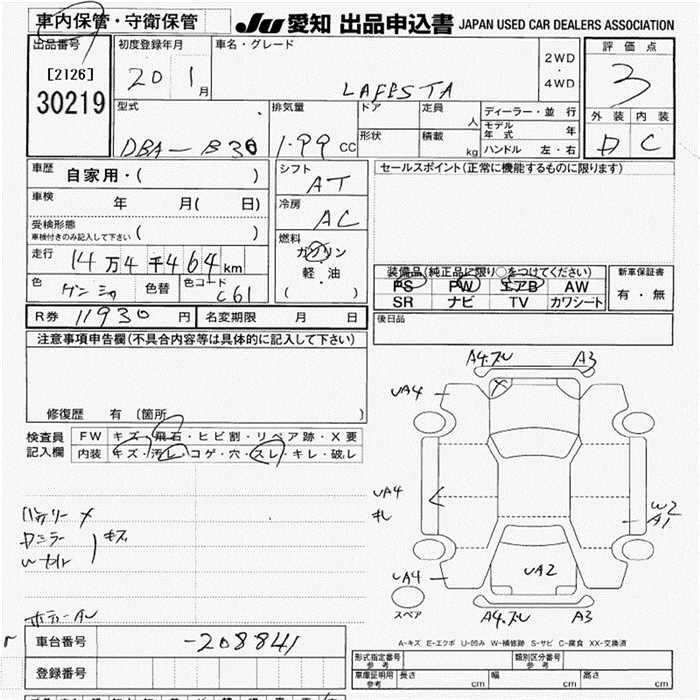 車内保管・守衛保管
JU 愛知 出品申込書 JAPAN USED CAR DEALERS ASSOCIATION
出品番号
[2126]
30219
初度登録年月
20 1月
車名・グレード
LAFESTA
2WD
・
4WD
評価点
3
外装 内装
D C
型式
DBA-B30
排気量
1.99 CC
ドア
形状
定員
人
積載
kg
ディーラー・並行
モデル年式 年
ハンドル 左・右
車歴 自家用・( )
車検 年 月( 日)
受検形態
車検付きのみ記入して下さい ( )
走行 14万4千464km
色 色替 色コード
C61
シフト
AT
冷房
AC
燃料
ガソリン
軽・油
( )
セールスポイント(正常に機能するものに限ります)
装備品(純正品に限り〇をつけてください)
PS PW エアB AW
SR ナビ TV カワシート
新車保証書
有・無
R券 11930 円 名変期限 月 日
後日品
注意事項申告欄(不具合内容等は具体的に記入して下さい)
修復歴 有 〔箇所 〕
検査員
記入欄
FW キズ・飛石・ヒビ割・リペア跡・X要
内装 キズ・汚レ・コゲ・穴・スレ・キレ・破レ
A4.ズレ A3
UA4
UA4
キレ
W2
A1
UA4
UA2
スペア
A4.ズレ A3
バッテリー メ
キズ
A-キズ E-エクボ U-凹み W-補修跡 S-サビ C-腐食 XX-交換済
車台番号 -208841
登録番号
形式指定番号
参考
類別区分番号
参考
車庫証明用
参考
長さ cm 幅 cm 高さ cm